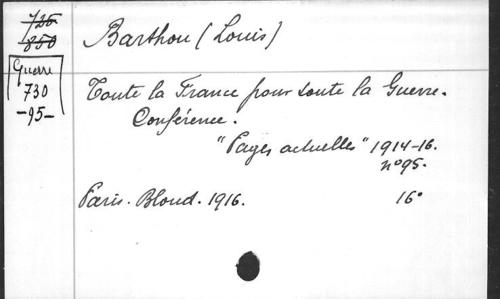 726
850
Guerre
730
-95-
Barthou (Louis)
Toute la France pour toute la Guerre.
Conférence.
"Pages actuelles" 1914-16.
nº 95.
Paris. Bloud. 1916. 16º